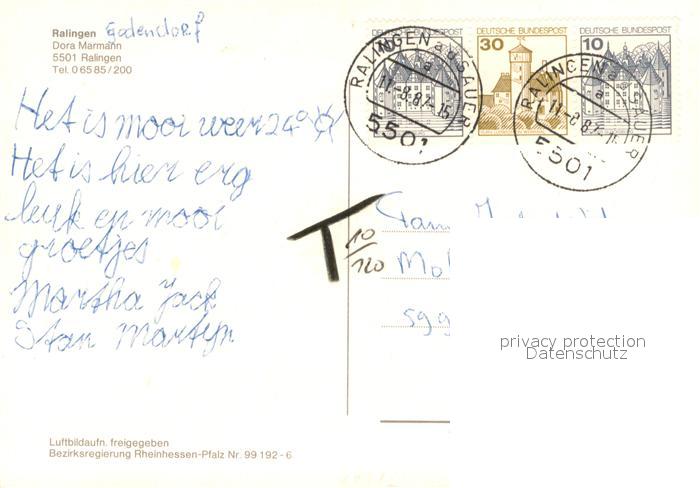 Ralingen Godendorf
Dora Marmann
5501 Ralingen
Tel. 0 65 85 / 200
Het is mooi weer 24°
Het is hier erg
leuk en mooi
groetjes
Martha Jack
Stan Martijn
Luftbildaufn. freigegeben
Bezirksregierung Rheinhessen-Pfalz Nr. 99 192 - 6
DEUTSCHE BUNDESPOST
30
DEUTSCHE BUNDESPOST
10
DEUTSCHE BUNDESPOST
RALINGEN a d SAUER
a
11.-8.87.-15
5501
RALINGEN a d SAUER
a
11.-8.87.-15
5501
T 10/120
Fam
Mol
599
privacy protection
Datenschutz